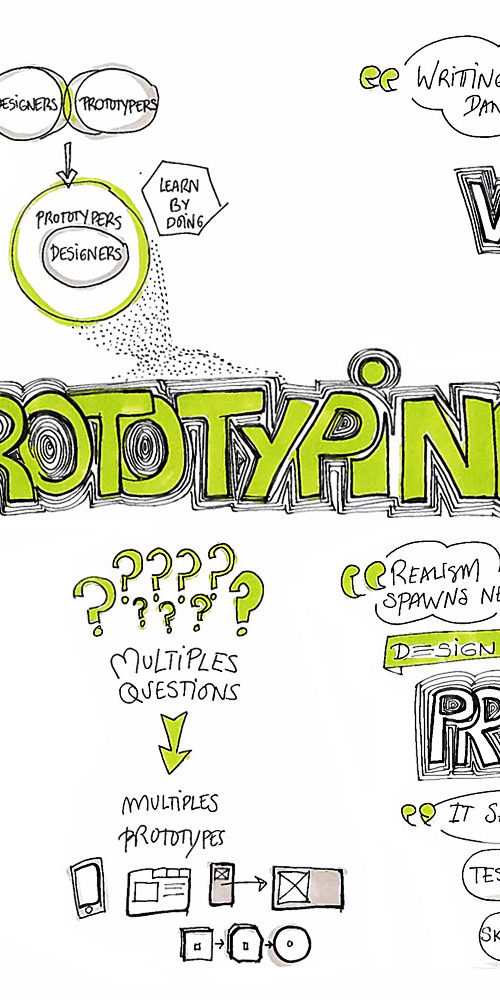 ESIGNERS PROTOTYPERS
PROTOTYPERS
DESIGNERS
LEARN
BY
DOING
WRITING
DAN
ROTOTYPIN
????
?????
MULTIPLES
QUESTIONS
MULTIPLES
PROTOTYPES
REALISM
SPAWNS NE
DESIGN
PR
IT S
TES
SK